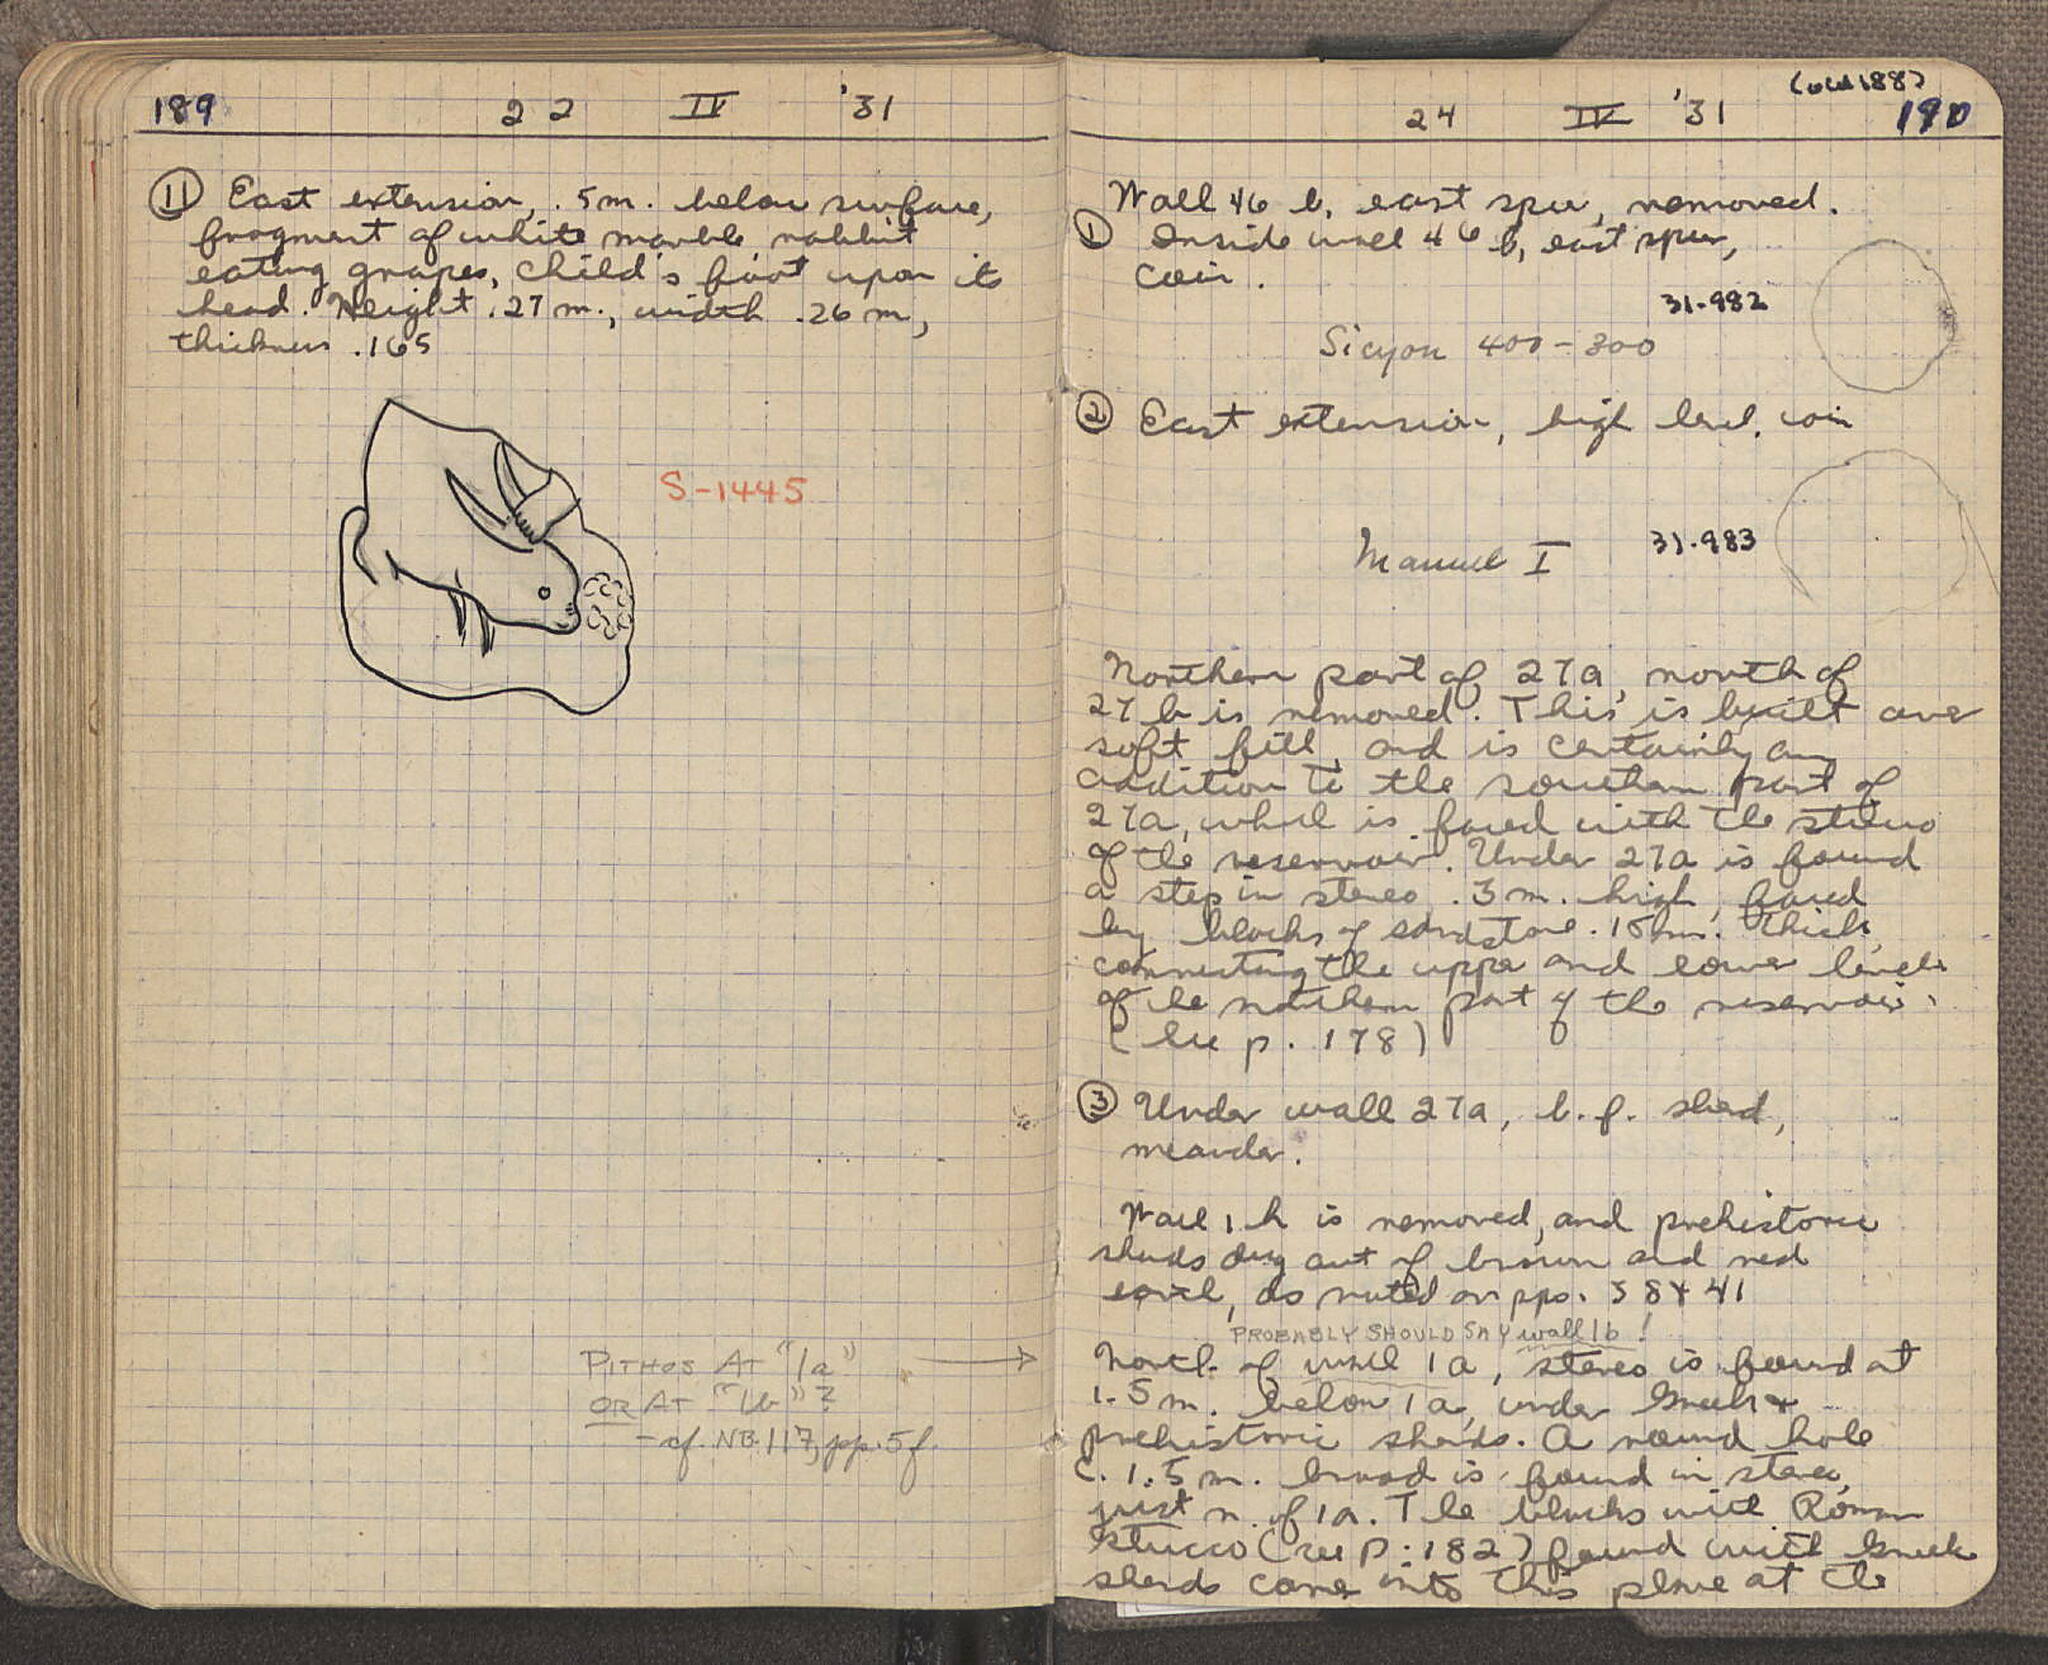 189 22 IV '31
⑪ East extension, .5m. below surface,
fragment of white marble rabbit
eating grapes, child's foot upon its
head. Height .27 m., width .26 m,
thickness .165
S-1445
PITHOS AT "1a"
OR AT "1b"?
- cf. NB.117, pp. 5f.
(old 188)
24 IV '31 190
Wall 46 b, east spur, removed.
① Inside wall 46 b, east spur,
coin.
31-982
Sicyon 400-300
② East extension, high level, coin
Manuel I 31-983
Northern part of 27a, north of
27 b is removed. This is built over
soft fill, and is certainly an
addition to the southern part of
27a, which is faced with the stucco
of the reservoir. Under 27a is found
a step in stereo .3 m. high, faced
by blocks of sandstone .18m. thick,
connecting the upper and lower levels
of the northern part of the reservoir.
(See p. 178)
③ Under wall 27a, b.f. sherd,
meander.
Wall 1 h is removed, and prehistoric
sherds dug out of brown and red
earth, as noted on pps. 38 & 41
PROBABLY SHOULD SAY wall 1b!
North of wall 1a, stereo is found at
1.5 m. below 1a, under Greek &
prehistoric sherds. A round hole
c. 1.5 m. broad is found in stereo,
just n. of 1a. The blocks with Roman
stucco (see p. 182) found with Greek
sherds came into this place at the